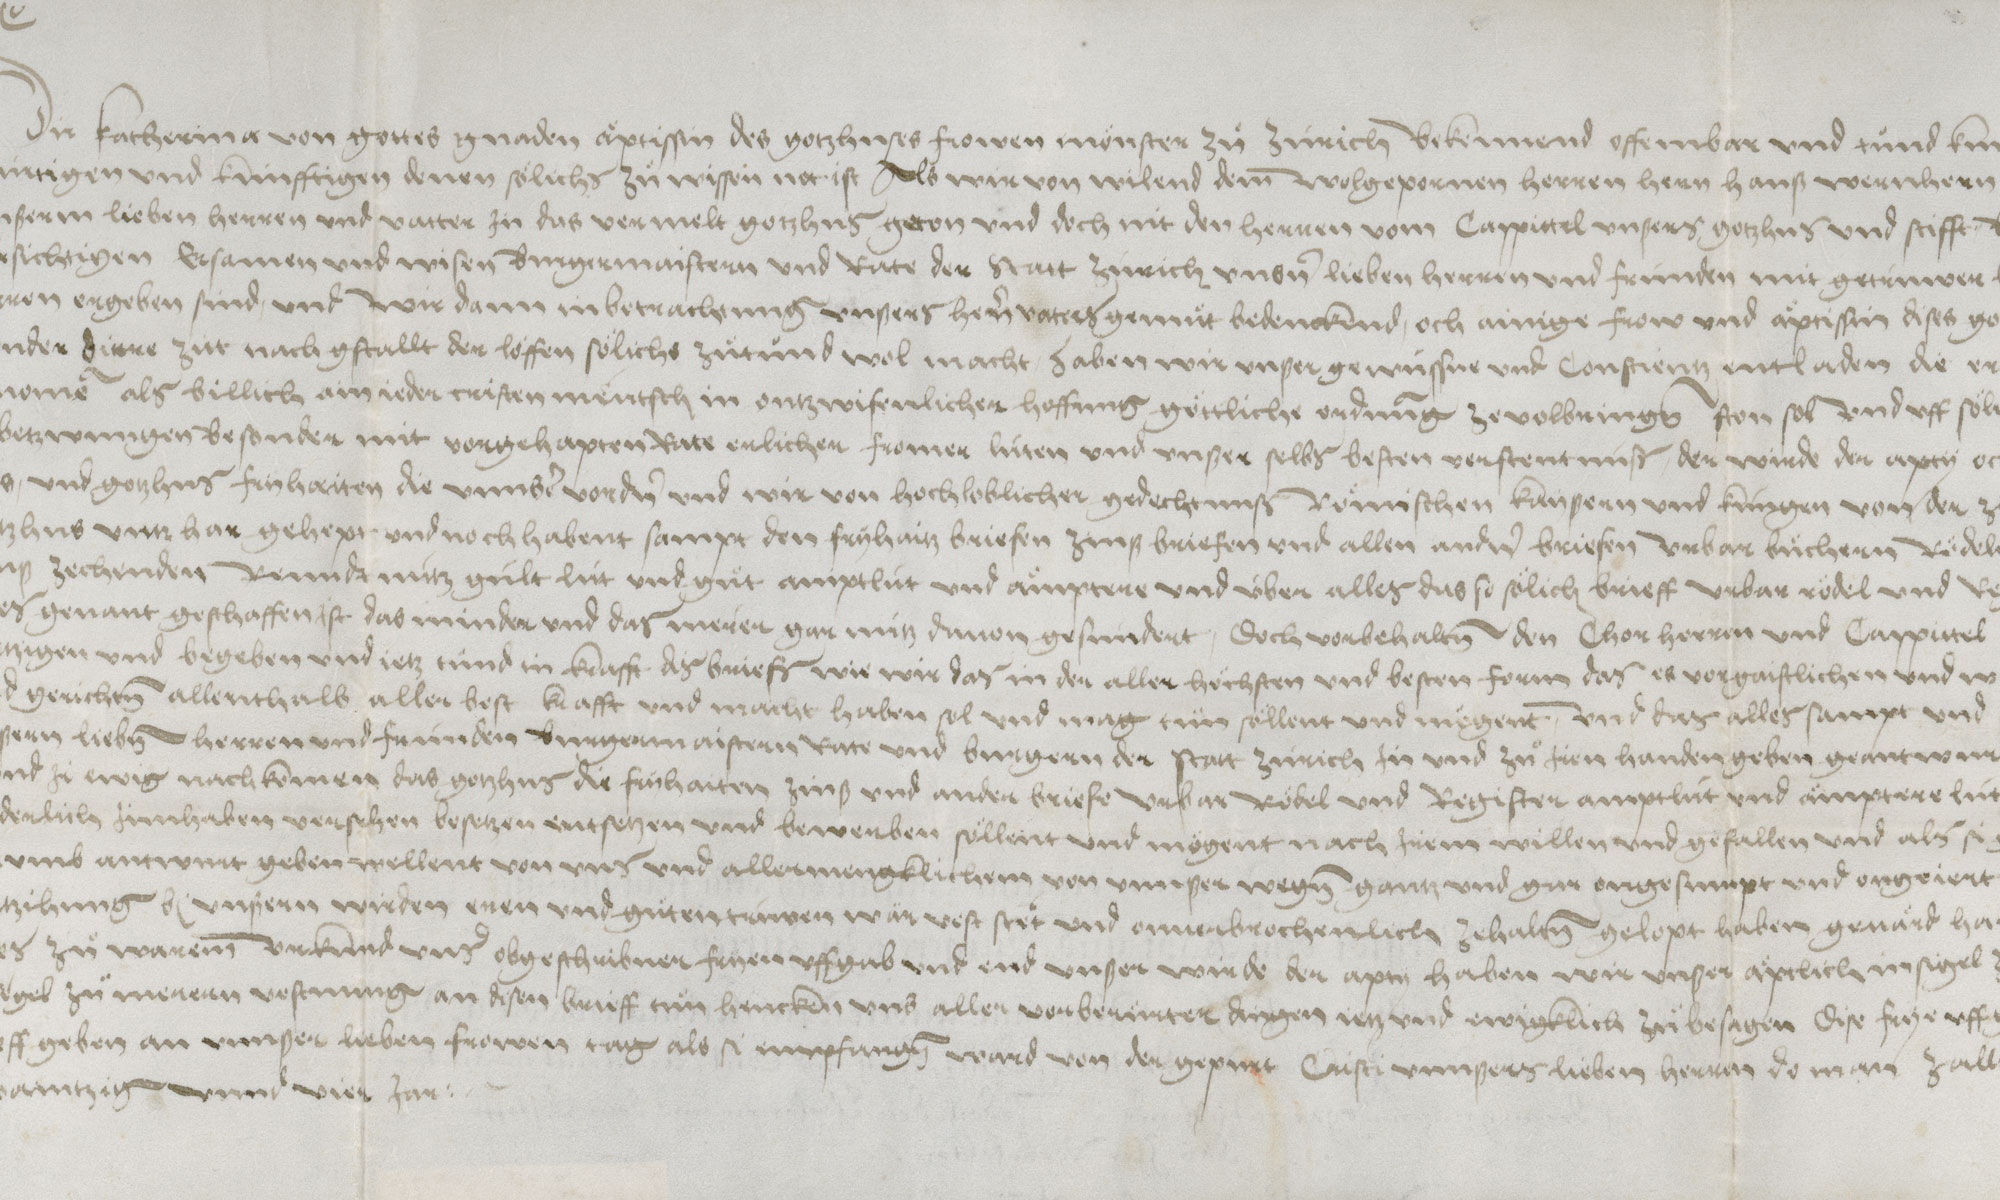 Wir katherina von gottes gnaden äptissin des gotzhuses frowen mönster zů Zürich bekennend offembar und tůnd kun
wirtigen und künfftigen denen sölichs zů wissen not ist Als wir von wilend dem wolgepornen herren hern hanß wernhern
unßerm lieben herren und vatter in das vermelt gotzhus geton und doch mit den herren vom Cappittel unßers gotzhus und stifft
rsichtigen Ersamen und wisen Burgermaistern und Rate der Statt Zürich unsn lieben herren und fründen mit getrüwer
rren ergeben sind, und wir dann in betrachtung unßers hern vaters gemüt bedenckend, och ainige frow und äptissin dises go
nder dirre zitt nach gstallt der löffen sölichs zůtůnd wol macht, haben wir unßer gewüssne und Conscientz entladen die er
nomē als billich ain ieder cristen mentsch in ontzwifenlicher hoffnung göttliche ordnung zevolbringen ston sol und uff söli
betzwungen besonder mit vorgehapten Rate erlicher fromer lüten und unßer selbs besten verstentnuß, der wirde der aptÿ och
s, und gotzhus frÿhaiten die unnser vordn und wir von hochloblicher gedechtnuß Römischen kaÿßern und küngen von der z
tzhus untz har gehept und noch habent sampt den frÿhaitz briefen zinß briefen und allen andn briefen urbar büchern Rödeln
nß zechenden Renndt nutz gült lüt und gůt amptlüt und ämptere und über alles das so sölich brieff urbar rödel und Re
es genant geschaffen ist das minder und das merer gar nütz davon gesündert, Doch vorbehaltn den Chorherren und Cappittel
tzigen und begeben und ietz tůnd in krafft dis briefs wie wir das in der aller höchsten und besten form das es vor gaistlichen und w
d gerichtn allenthalb aller best krafft und macht haben sol und mag tůn söllent und mögent, und das alles sampt und
ßern liebn herren und fründen Burgermaistern Rate und burgern der Statt Zürich in und zů iren handen geben geantwurt
nd in ewig nachkomen das gotzhus die frÿhaiten zinß und ander briefe urbar Rödel und Register amptlüt und ämptere lüt
derlich innhaben versehen besetzen entsetzen und bewerben söllent und mögent nach irem willen und gefallen und als si
umb antwurt geben wellent von uns und allermengklichem von unnßer wegn gantz und gar ongesumpt und ongeiert
tzihung bÿ unßern wirden eren und gůten trüwen wär vest stët und onnerbrochenlich zehaltn gelopt haben genärd har
es zů warem Urkund unsr obgeschribner frÿen uffgab und end unßer wirde der aptÿ haben wir unßer äptlich insigel
igel zů merern vestnung an disen brieff tůn hencken uns aller vorberürter dingen ietz und ewigklich zů besagen Dise frÿe uff
eff geben an unnßer lieben frowen tag als si empfangn ward von der gepurt Cristi unnßers lieben herren do man zalt
wantzig unnd vier Jar